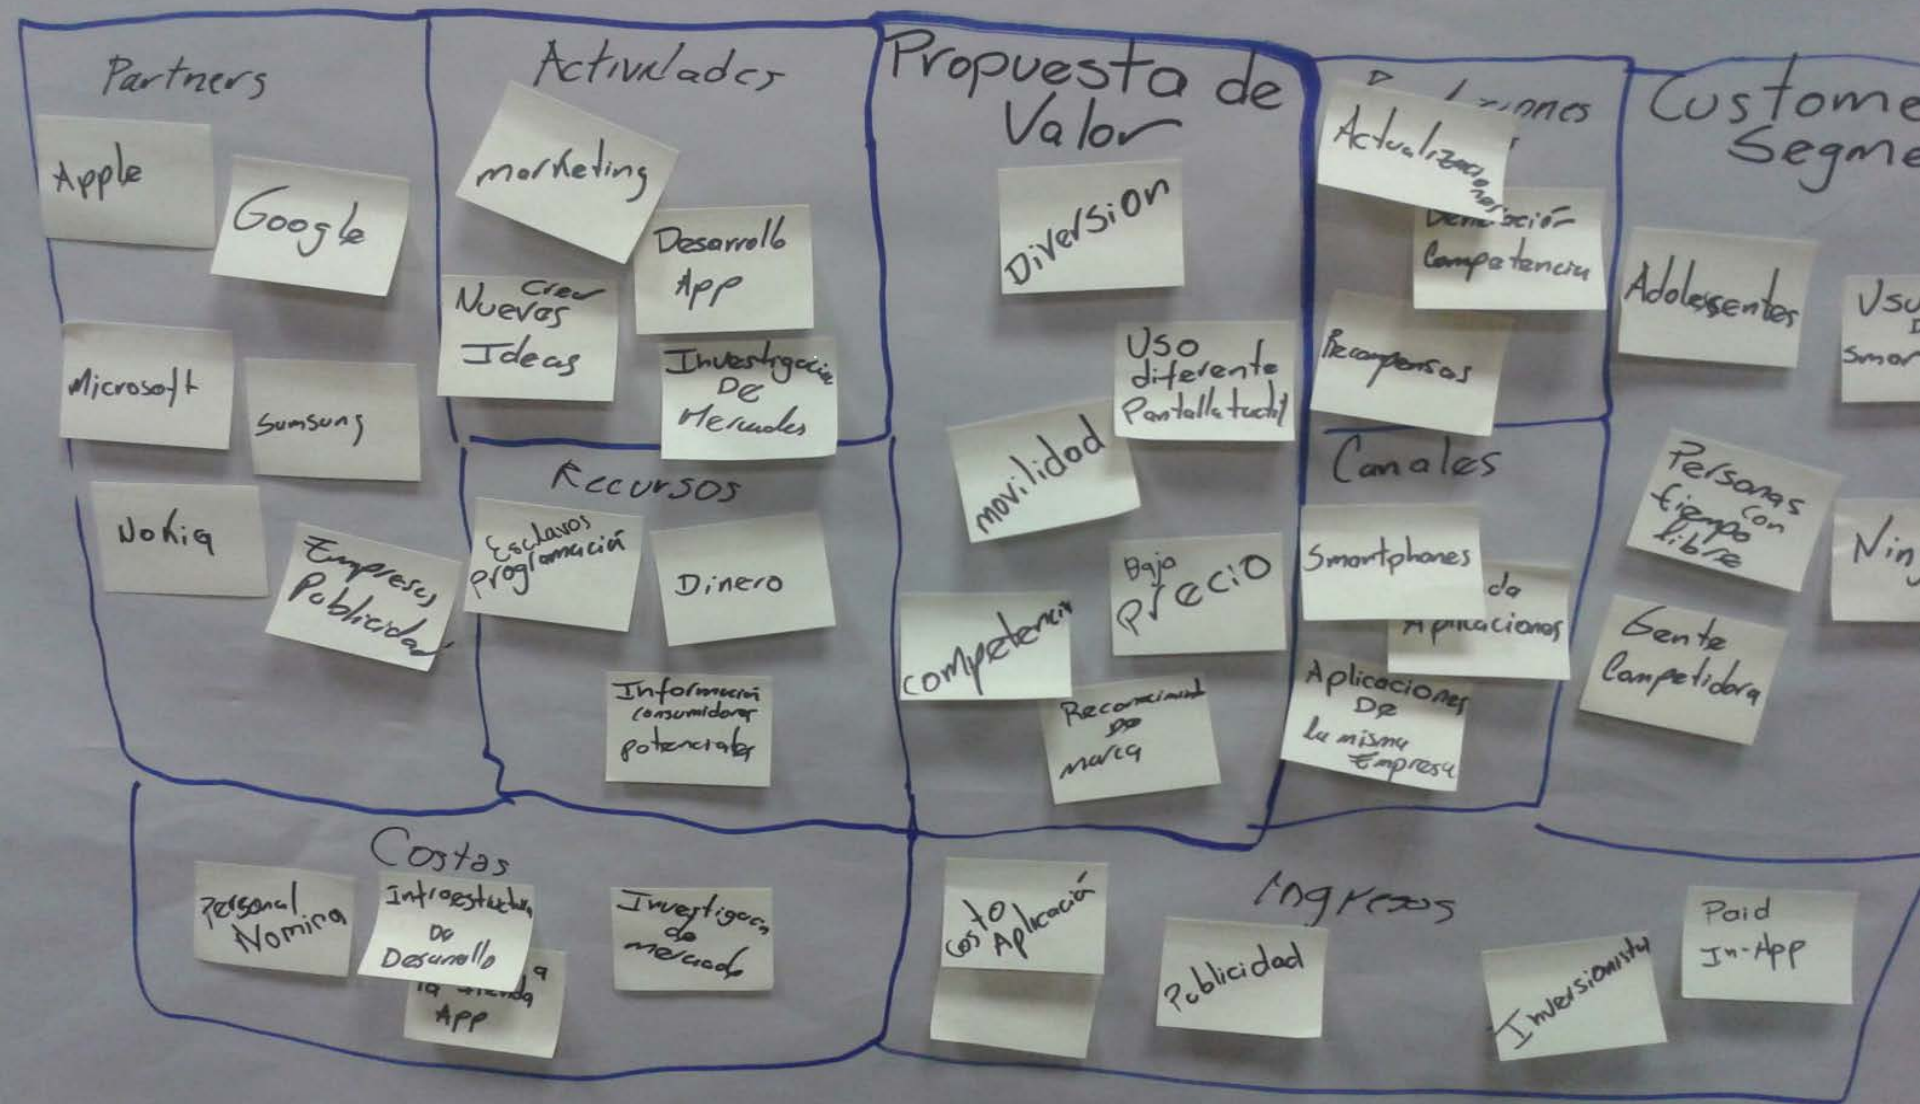 Partners
Apple
Google
Microsoft
Sumsung
Nokia
Empresas
Publicidad
Actividades
marketing
Desarrollo
App
Crear
Nuevas
Ideas
Investigacion
De
Mercados
Recursos
Esclavos
programación
Dinero
Información
consumidores
potenciales
Propuesta de
Valor
Diversion
Uso
diferente
Pantalla tactil
movilidad
Bajo
precio
competencia
Reconocimiento
De
marca
Actualizaciones
Competencia
Recompensas
Canales
Smartphones
da
Aplicaciones
Aplicaciones
De
la misma
Empresa
Custome
Segme
Adolessentes
Usu
Smar
Personas
con
tiempo
libre
Nin
Gente
Competidora
Costos
Personal
Nomina
Infraestructura
De
Desarrollo
la tienda
App
Investigacion
de
mercado
Ingresos
Costo
Aplicación
Publicidad
Inversionistas
Paid
In-App